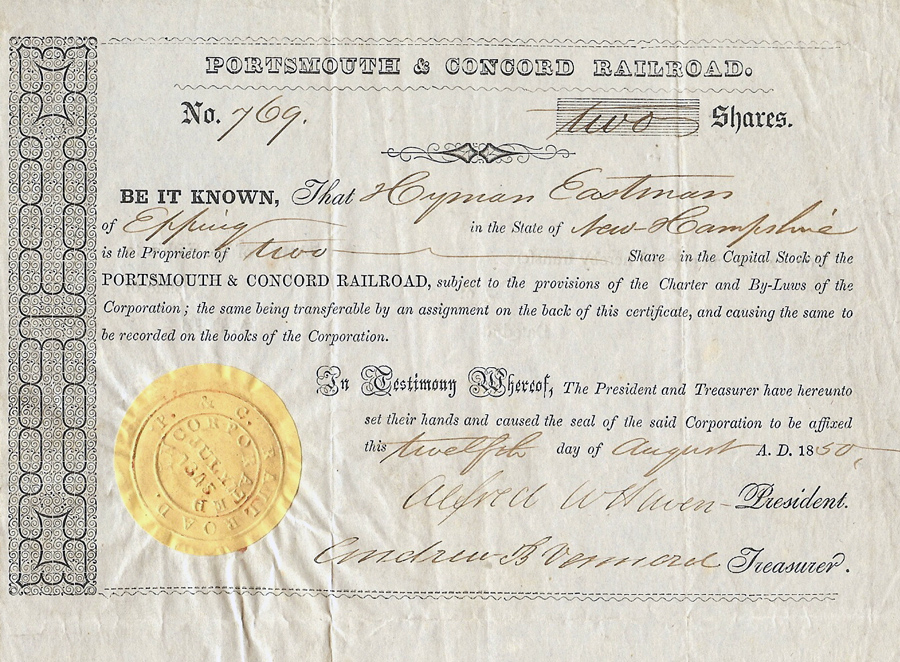 PORTSMOUTH & CONCORD RAILROAD.
No. 769. two Shares.
BE IT KNOWN, That Hyman Eastman
of Epping in the State of New-Hampshire
is the Proprietor of two Share in the Capital Stock of the
PORTSMOUTH & CONCORD RAILROAD, subject to the provisions of the Charter and By-Luws of the
Corporation; the same being transferable by an assignment on the back of this certificate, and causing the same to
be recorded on the books of the Corporation.
In Testimony Whereof, The President and Treasurer have hereunto
set their hands and caused the seal of the said Corporation to be affixed
this twelfth day of August A. D. 1850,
Alfred W Haven - President.
Andrew B Vennard Treasurer.
P. & C. RAILROAD.
CORPORATED
JULY
1845